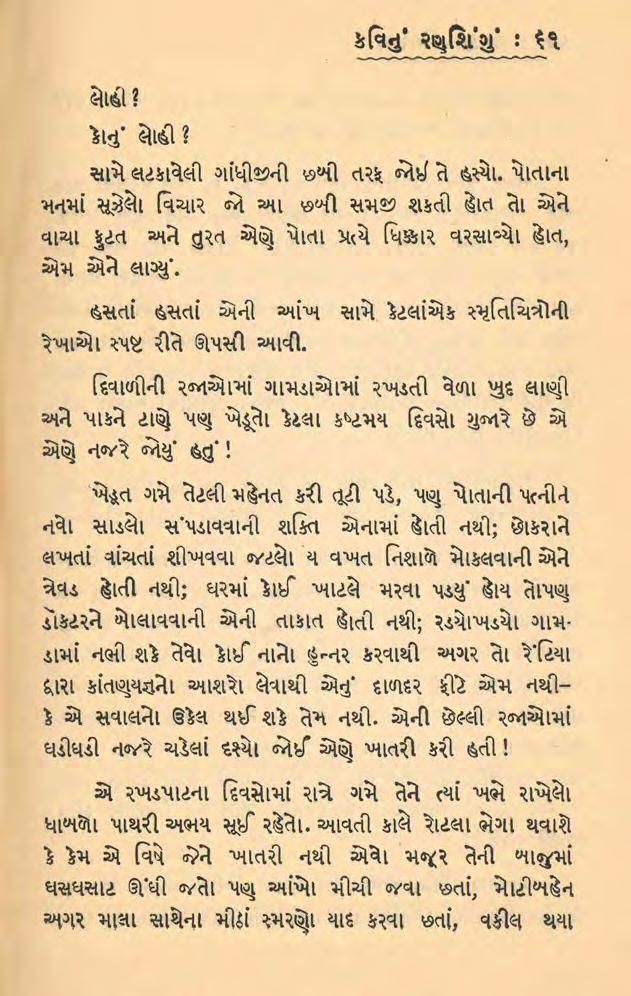 કવિનું રણશિંગું : ૬૧
લોહી ?
કોનું લોહી ?
સામે લટકાવેલી ગાંધીજીની છબી તરફ જોઈ તે હસ્યો. પોતાના
મનમાં સૂઝેલો વિચાર જો આ છબી સમજી શકતી હોત તો એને
વાચા ફુટત અને તુરત એણે પોતા પ્રત્યે ધિક્કાર વરસાવ્યો હોત,
એમ એને લાગ્યું.
હસતાં હસતાં એની આંખ સામે કેટલાંએક સ્મૃતિચિત્રોની
રેખાઓ સ્પષ્ટ રીતે ઊપસી આવી.
દિવાળીની રજાઓમાં ગામડાઓમાં રખડતી વેળા ખુદ લાણી
અને પાકને ટાણે પણ ખેડૂતો કેટલા કષ્ટમય દિવસો ગુજારે છે એ
એણે નજરે જોયું હતું !
ખેડૂત ગમે તેટલી મહેનત કરી તૂટી પડે, પણ પોતાની પત્નીને
નવો સાડલો સંપડાવવાની શક્તિ એનામાં હોતી નથી; છોકરાને
લખતાં વાંચતાં શીખવવા જટલો ય વખત નિશાળે મોકલવાની એને
ત્રેવડ હોતી નથી; ઘરમાં કોઈ ખાટલે મરવા પડયું હોય તોપણ
ડોકટરને બોલાવવાની એની તાકાત હોતી નથી; રડયોખડયો ગામ-
ડામાં નભી શકે તેવો કોઈ નાનો હુન્નર કરવાથી અગર તો રેંટિયા
દ્વારા કાંતણયજ્ઞનો આશરો લેવાથી એનું દાળદર ફીટે એમ નથી–
કે એ સવાલનો ઉકેલ થઈ શકે તેમ નથી. એની છેલ્લી રજાઓમાં
ઘડીઘડી નજરે ચડેલાં દશ્યો જોઈ એણે ખાતરી કરી હતી !
એ રખડપાટના દિવસોમાં રાત્રે ગમે તેને ત્યાં ખભે રાખેલો
ધાબળો પાથરી અભય સૂઈ રહેતો. આવતી કાલે રોટલા ભેગા થવાશે
કે કેમ એ વિષે જેને ખાતરી નથી એવો મજૂર તેની બાજુમાં
ઘસઘસાટ ઊંઘી જતો પણ આંખો મીચી જવા છતાં, મોટીબહેન
અગર માલા સાથેના મીઠાં સ્મરણો યાદ કરવા છતાં, વકીલ થયા